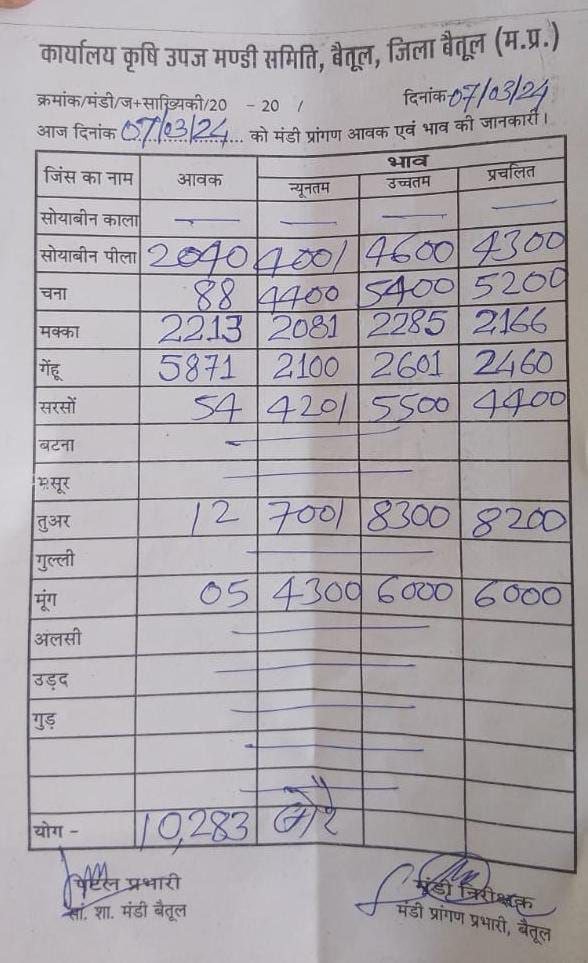 कार्यालय कृषि उपज मण्डी समिति, बैतूल, जिला बैतूल (म.प्र.)
क्रमांक/मंडी/ज+सांख्यिकी/20 - 20 / दिनांक 07/03/24
आज दिनांक 07/03/24 को मंडी प्रांगण आवक एवं भाव की जानकारी।
जिंस का नाम आवक भाव
न्यूनतम उच्चतम प्रचलित
सोयाबीन काला — — — —
सोयाबीन पीला 2040 4001 4600 4300
चना 88 4400 5400 5200
मक्का 2213 2081 2285 2166
गेंहू 5871 2100 2601 2460
सरसों 54 4201 5500 4400
बटना —
मसूर —
तुअर 12 7001 8300 8200
गुल्ली —
मूंग 05 4300 6000 6000
अलसी —
उड़द —
गुड़ —
—
—
योग - 10,283 बोरे
पटल प्रभारी मंडी निरीक्षक
सां. शा. मंडी बैतूल मंडी प्रांगण प्रभारी, बैतूल